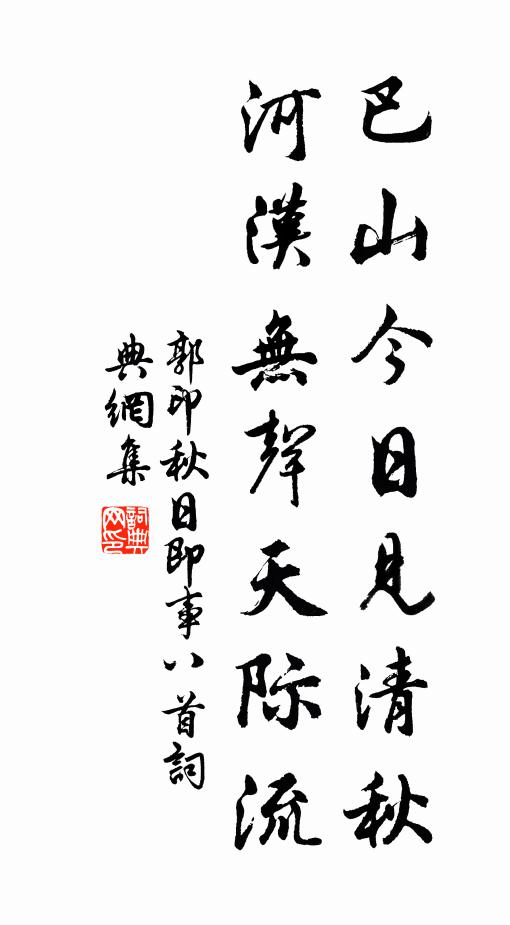 巴山今日見清秋
河漢無聲天际流
郭印秋日即事八首詞
典網集
詞典网印